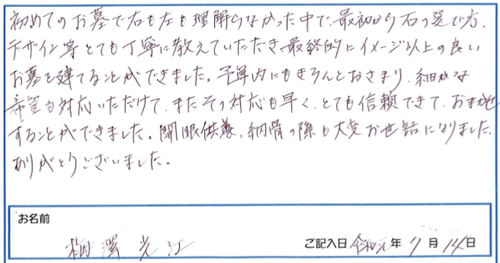 初めてのお墓で右も左も理解らなかった中で、最初から石の選び方、
デザイン等とても丁寧に教えていただき、最終的にイメージ以上の良い
お墓を建てることができました。予算内にもきちんとおさまり、細かな
希望も対応いただけて、またその対応も早く、とても信頼できて、おまかせ
することができました。開眼供養、納骨の際も大変お世話になりました。
ありがとうございました。
お名前
ご記入日 令和元年 7月 14日